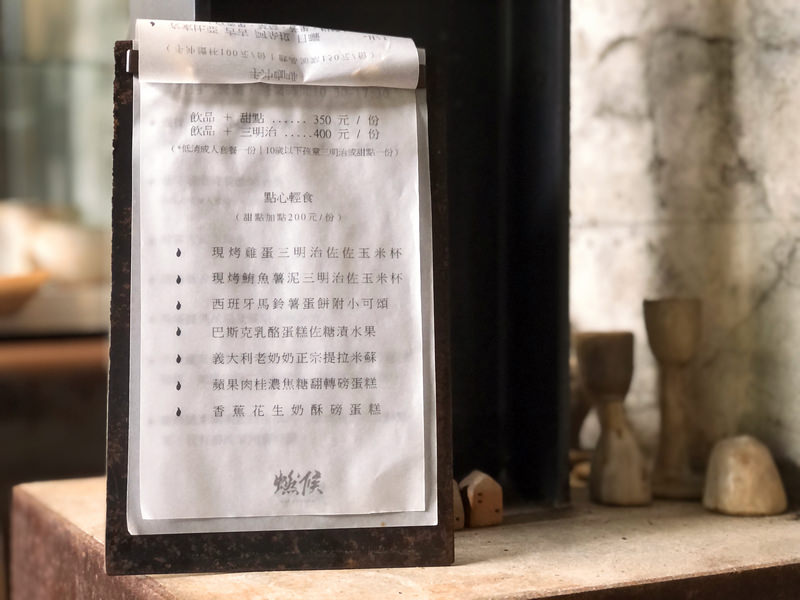 飲品 + 甜點 ...... 350 元 / 份
飲品 + 三明治 .....400 元 / 份
(*低消成人套餐一份|10歲以下孩童三明治或甜點一份)
點心輕食
(甜點加點200元/份)
現烤雞蛋三明治佐佐玉米杯
現烤鮪魚薯泥三明治佐佐玉米杯
西班牙馬鈴薯蛋餅附小可頌
巴斯克乳酪蛋糕佐糖漬水果
義大利老奶奶正宗提拉米蘇
蘋果肉桂濃焦糖翻轉磅蛋糕
香蕉花生奶酥磅蛋糕